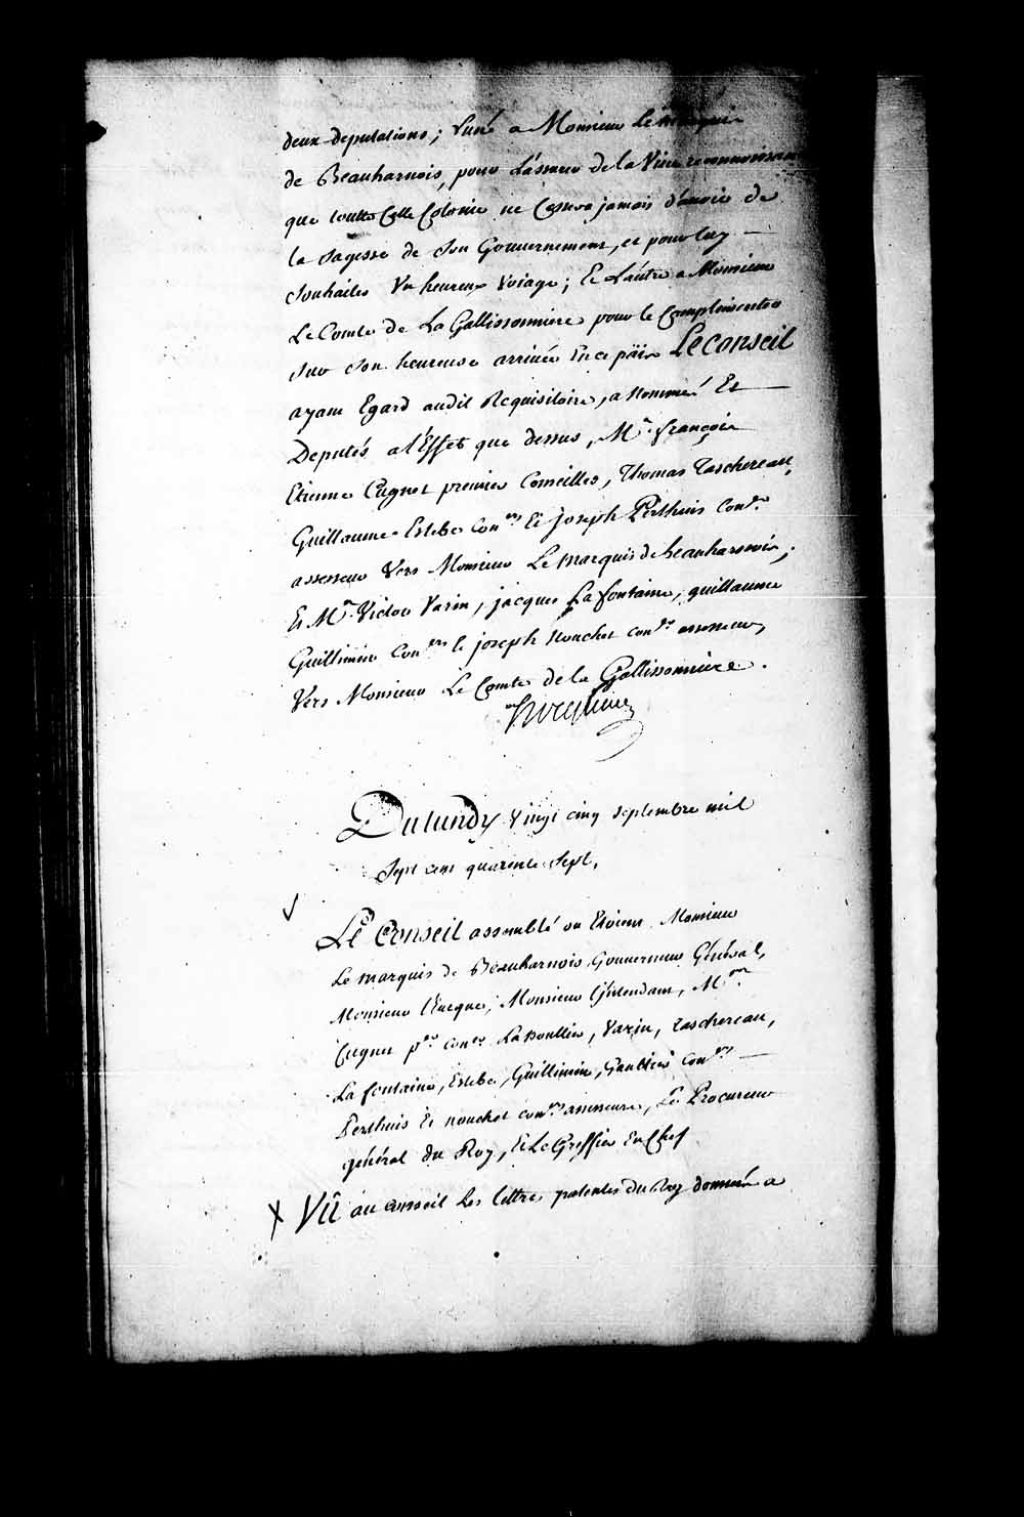 deux deputations; Lune a Monsieur Le marquis
de Beauharnois, pour L'assurer de la Vive reconnoissance
que toutte Cette Colonie ne Cessera jamais d'avoir de
la Sagesse de Son Gouvernement, et pour luy
Souhaiter Un heureux Voiage; Et L'autre a Monsieur
Le Comte de La Gallissonniere pour le Complimenter
Sur Son heureuse arrivée En ce païs Le Conseil
ayant Egard audit Requisitoire, a Nommé Et
Deputés a l'Effet que dessus, Mrs françois
Etienne Cugnet premier Conseiller, Thomas Taschereau,
Guillaume Estebe Coners Et joseph Perthuis Coner
assesseur Vers Monsieur Le marquis de beauharnois;
Et Mrs Victor Varin, jacques La fontaine, guillaume
Guillimin Coners Et joseph Nouchet Coner assesseur,
Vers Monsieur Le Comte de la Gallissonniere.
Du lundy Vingt cinq Septembre mil
Sept cent quarente Sept.
Le Conseil assemblé ou Etoient Monsieur
Le marquis de Beauharnois Gouverneur Général,
Monsieur l'Eveque, Monsieur l'Intendant, Mrs
Cugnet per coner La Noullier, Varin, Taschereau,
La fontaine, Estebe, Guillimin, Gaultier Coners
Perthuis Et nouchet coners assesseurs, Le Procureur
général du Roy, Et Le Greffier En Chef
X Vû au conseil Les lettres patentes du Roy données a